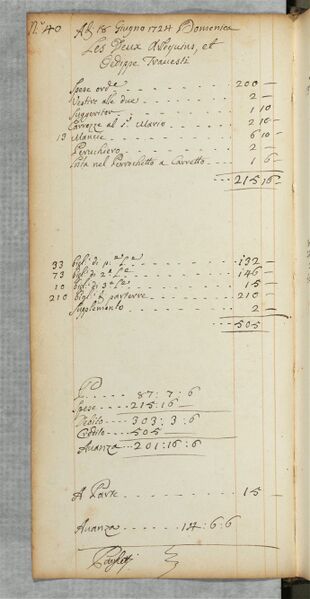 N.º 40 Adj 18 Giugno 1724 Domenica
Les Deux Arlequins, et
Oedippe Travesti
Spese ord.e 200 —
Vestire alle due 2 —
Suggeritor 1 10
Carrozze al S.r Mario 2 10
13 Mancie 6 10
Peruchiero 2 —
nel Perrochetto a Carretto 1 6
215 16
33 bigl.i di p.e L.e 132 —
73 bigl.i di 2.e L.e 146 —
10 bigl.i di 3.e L.e 15 —
210 bigl.i parterre 210 —
Supplemento 2 —
505
87 : 7 : 6
Spese 215 : 16
Debito 303 : 3 : 6
Credito 505
Avanza 201 : 16 : 6
A Parte 15 —
Avanza 14 : 6 : 6